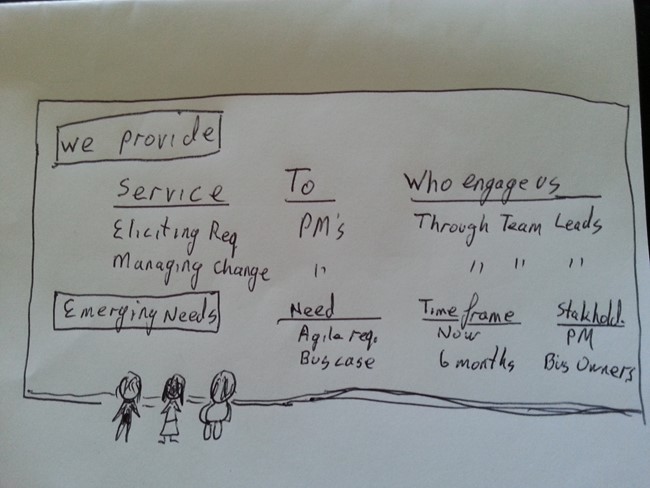 we provide
Service To Who engage us
Eliciting Req PM's Through Team Leads
Managing change " " " "
Emerging Needs Need Time frame Stakhold.
Agila req. Now PM
Bus case 6 months Bus Owners